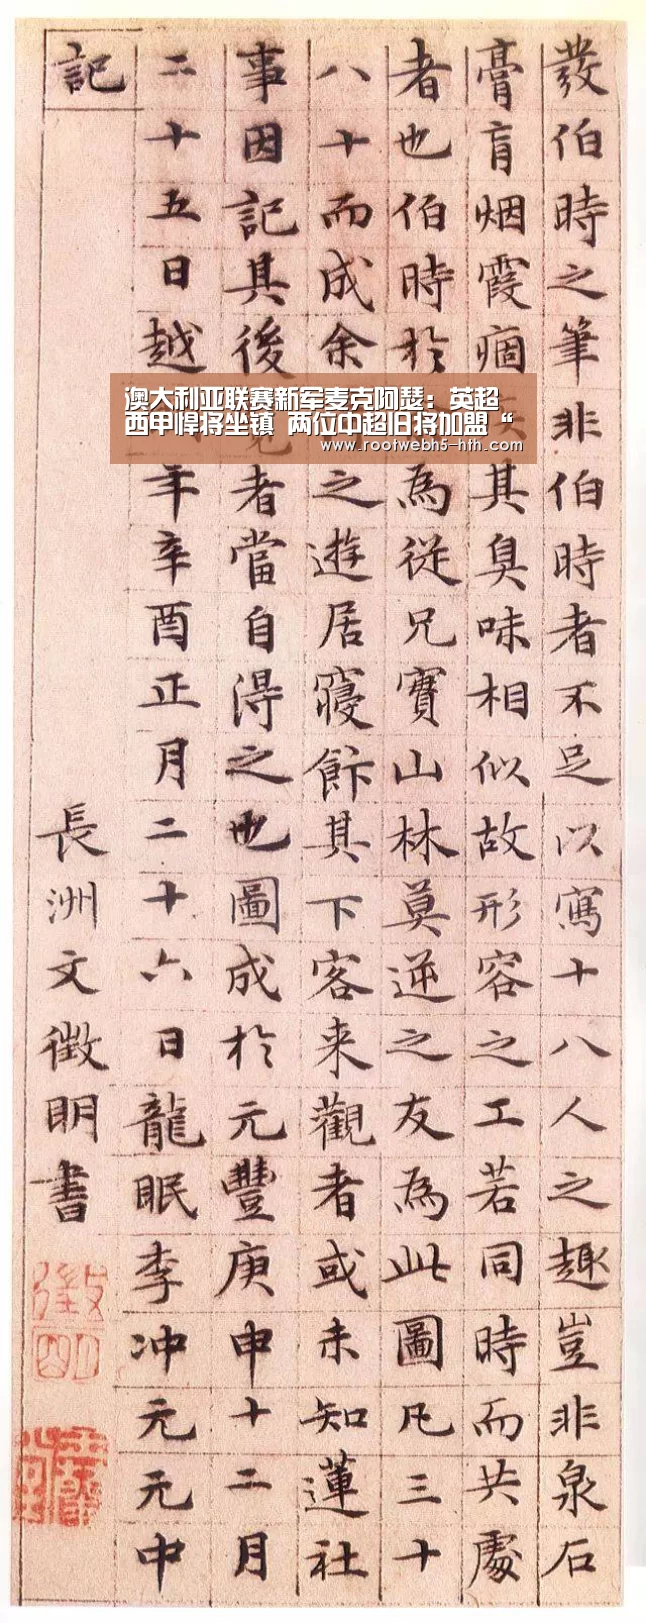 發伯時之筆非伯時者不足以寫十八人之趣豈非泉石
膏肓烟霞痼其臭味相似故形容之工若同時而共處
者也伯時於為從兄實山林莫逆之友為此圖凡三十
八十而成余之遊居寢飰其下客来觀者或未知蓮社
事因記其後者當自得之也圖成於元豐庚申十二月
二十五日越年辛酉正月二十六日龍眠李冲元元中
記
長洲文徵明書
徵明
澳大利亚联赛新军麦克阿瑟：英超
西甲悍将坐镇 两位中超旧将加盟“
www.rootwebh5-hth.com